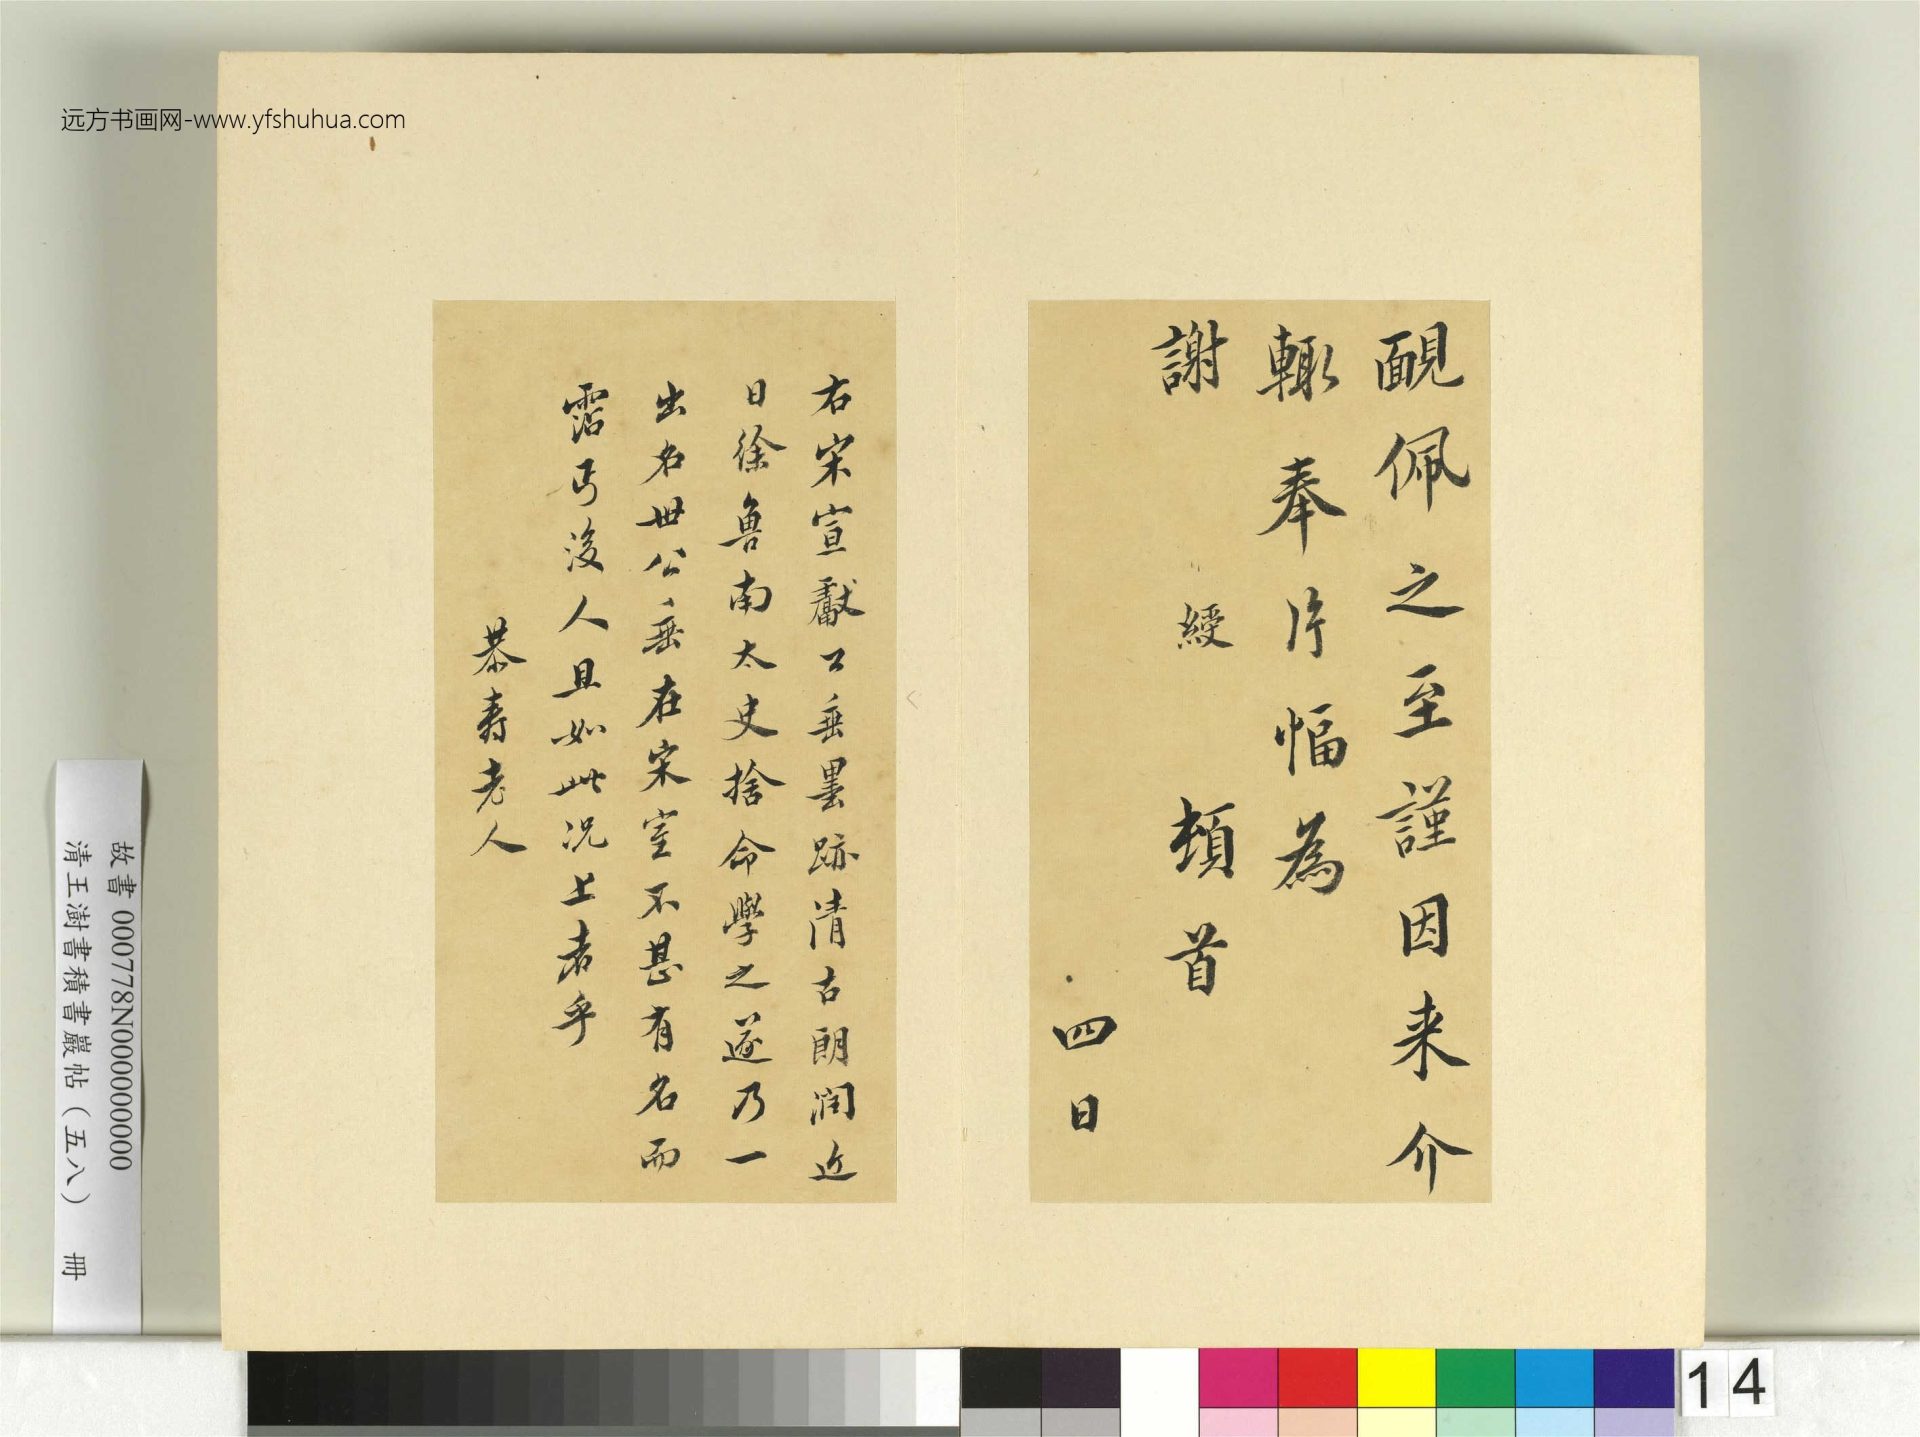 远方书画网-www.yfshuhua.com
靦佩之至謹因来介
輙奉片幅為
謝 綬 頓首
四日
右宋宣獻公垂墨跡清古朗润近
日徐魯南太史捨命學之遂乃一
出名世公垂在宋室不甚有名而
霑丐後人且如此况上者乎
恭壽老人
故書 000778N000000000
清王澍書積書巖帖(五八) 冊
14